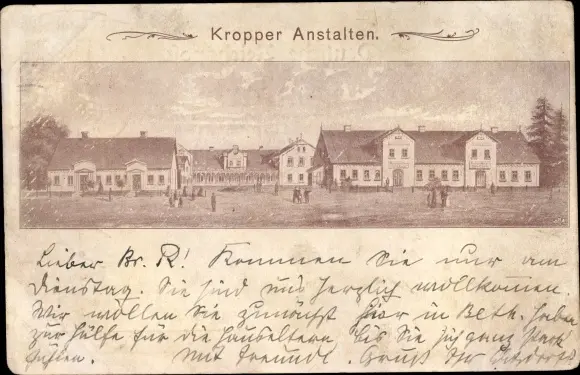 Kropper Anstalten.
Lieber Br. R! Kommen Sie nur am
Dienstag. Sie sind uns herzlich willkommen.
Wir wollen Sie zunächst hier in Beth. haben
zur Hülfe für die Hauseltern, bis Sie sich ganz stark
fühlen. Mit freundl. Gruß Ihr